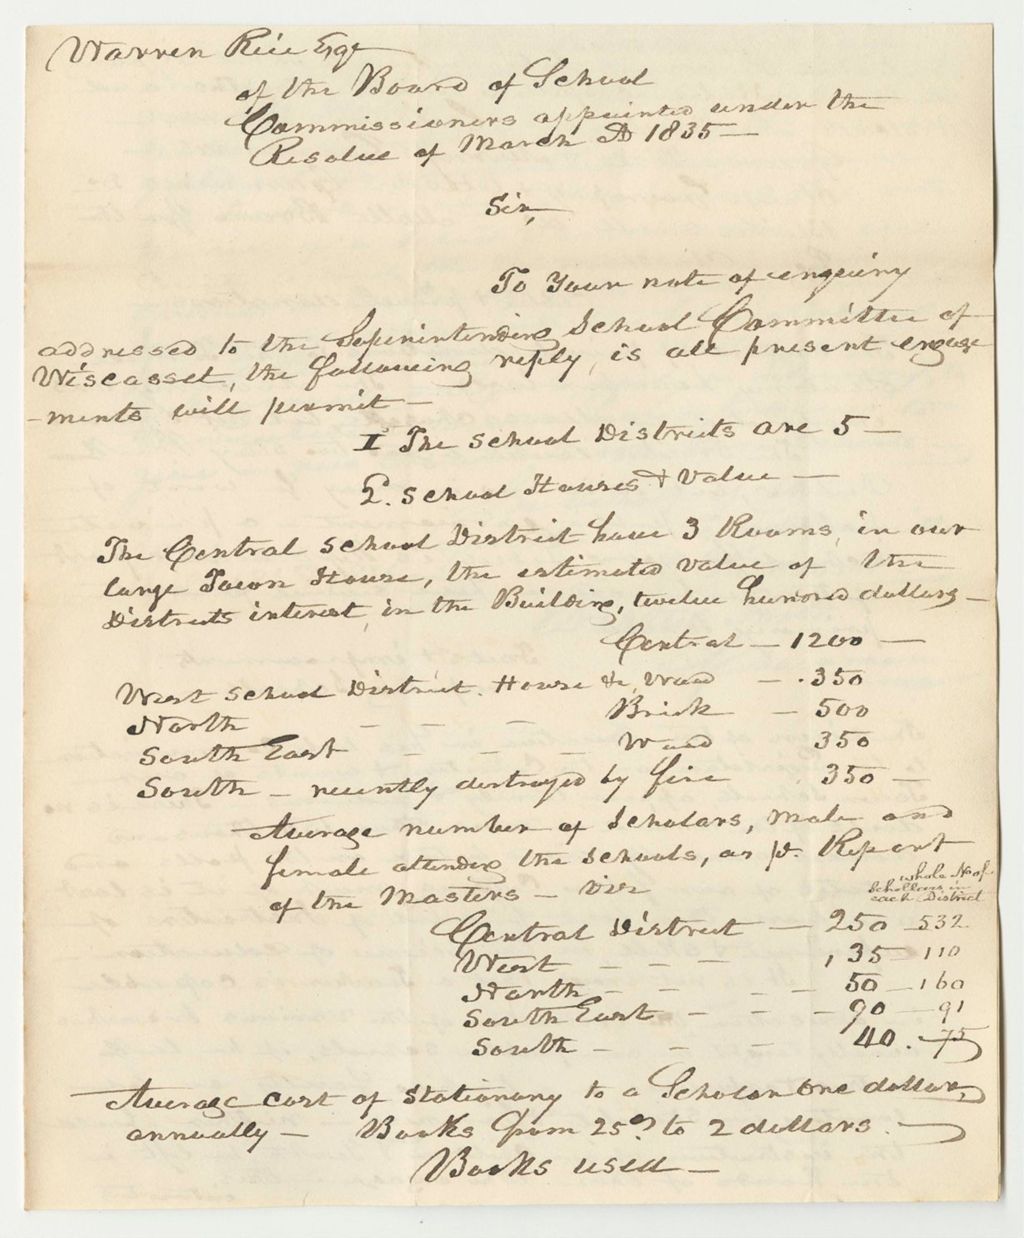 Warren Rice Esqr
of the Board of School
Commissioners appointed under the
Resolve of March AD 1835 —
Sir,
To Your note of enquiry
addressed to the Seperintending School Committee of
Wiscasset, the following reply, is all present engage
-ments will permit —
I The School Districts are 5 —
2. School Houses & Value —
The Central School District have 3 Rooms, in our
large Town House, the estimated value of the
Districts interest, in the Building, twelve hundred dollars —
Central — 1200 —
West School District. House &c, Wood — . 350
North — — — Brick — 500
South East — — — Wood 350
South — recently destroyed by fire . 350 —
Average number of Scholars, male and
female attending the Schools, as pr. Report
of the Masters — Viz
whole No of
Schollars in
each District
Central District — 250 — 532
West — — — , 35 — 110
North — — — — 50 — 160
South East — — — 90 — 91
South — — — 40 . — 75
Average cost of Stationary to a Scholar One dollar,
annually — Books from 25c. to 2 dollars. —
Books used —